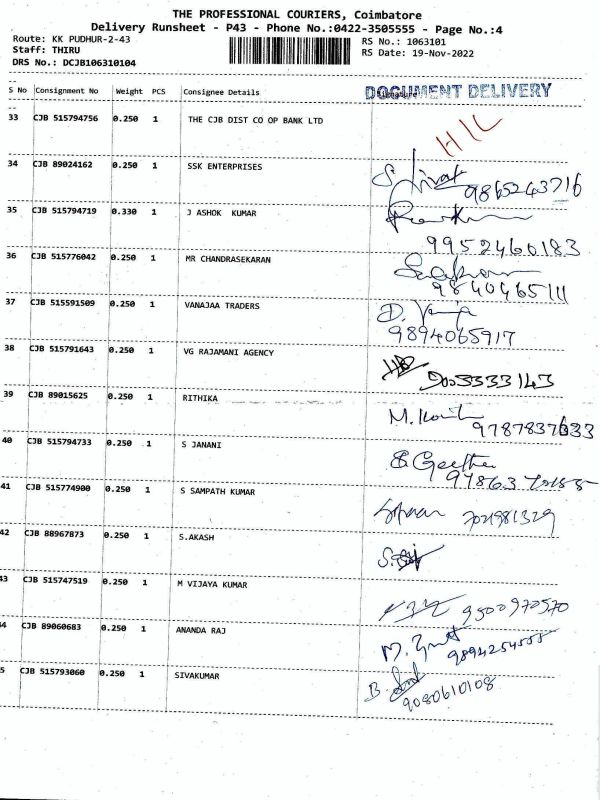 THE PROFESSIONAL COURIERS, Coimbatore
Delivery Runsheet - P43 - Phone No.:0422-3505555 - Page No.:4
Route: KK PUDHUR-2-43 RS No.: 1063101
Staff: THIRU RS Date: 19-Nov-2022
DRS No.: DCJB106310104
S No Consignment No Weight PCS Consignee Details Signature DOCUMENT DELIVERY
33 CJB 515794756 0.250 1 THE CJB DIST CO OP BANK LTD H/L
34 CJB 89024162 0.250 1 SSK ENTERPRISES 9865243716
35 CJB 515794719 0.330 1 J ASHOK KUMAR
9952460183
36 CJB 515776042 0.250 1 MR CHANDRASEKARAN
9840465111
37 CJB 515591509 0.250 1 VANAJAA TRADERS D.
9894065917
38 CJB 515791643 0.250 1 VG RAJAMANI AGENCY
39 CJB 89015625 0.250 1 RITHIKA M.
40 CJB 515794733 0.250 1 S JANANI Geetha
41 CJB 515774900 0.250 1 S SAMPATH KUMAR
42 CJB 88967873 0.250 1 S.AKASH
43 CJB 515747519 0.250 1 M VIJAYA KUMAR 9500970570
44 CJB 89060683 0.250 1 ANANDA RAJ M. 9894254555
5 CJB 515793060 0.250 1 SIVAKUMAR B.
9080610108